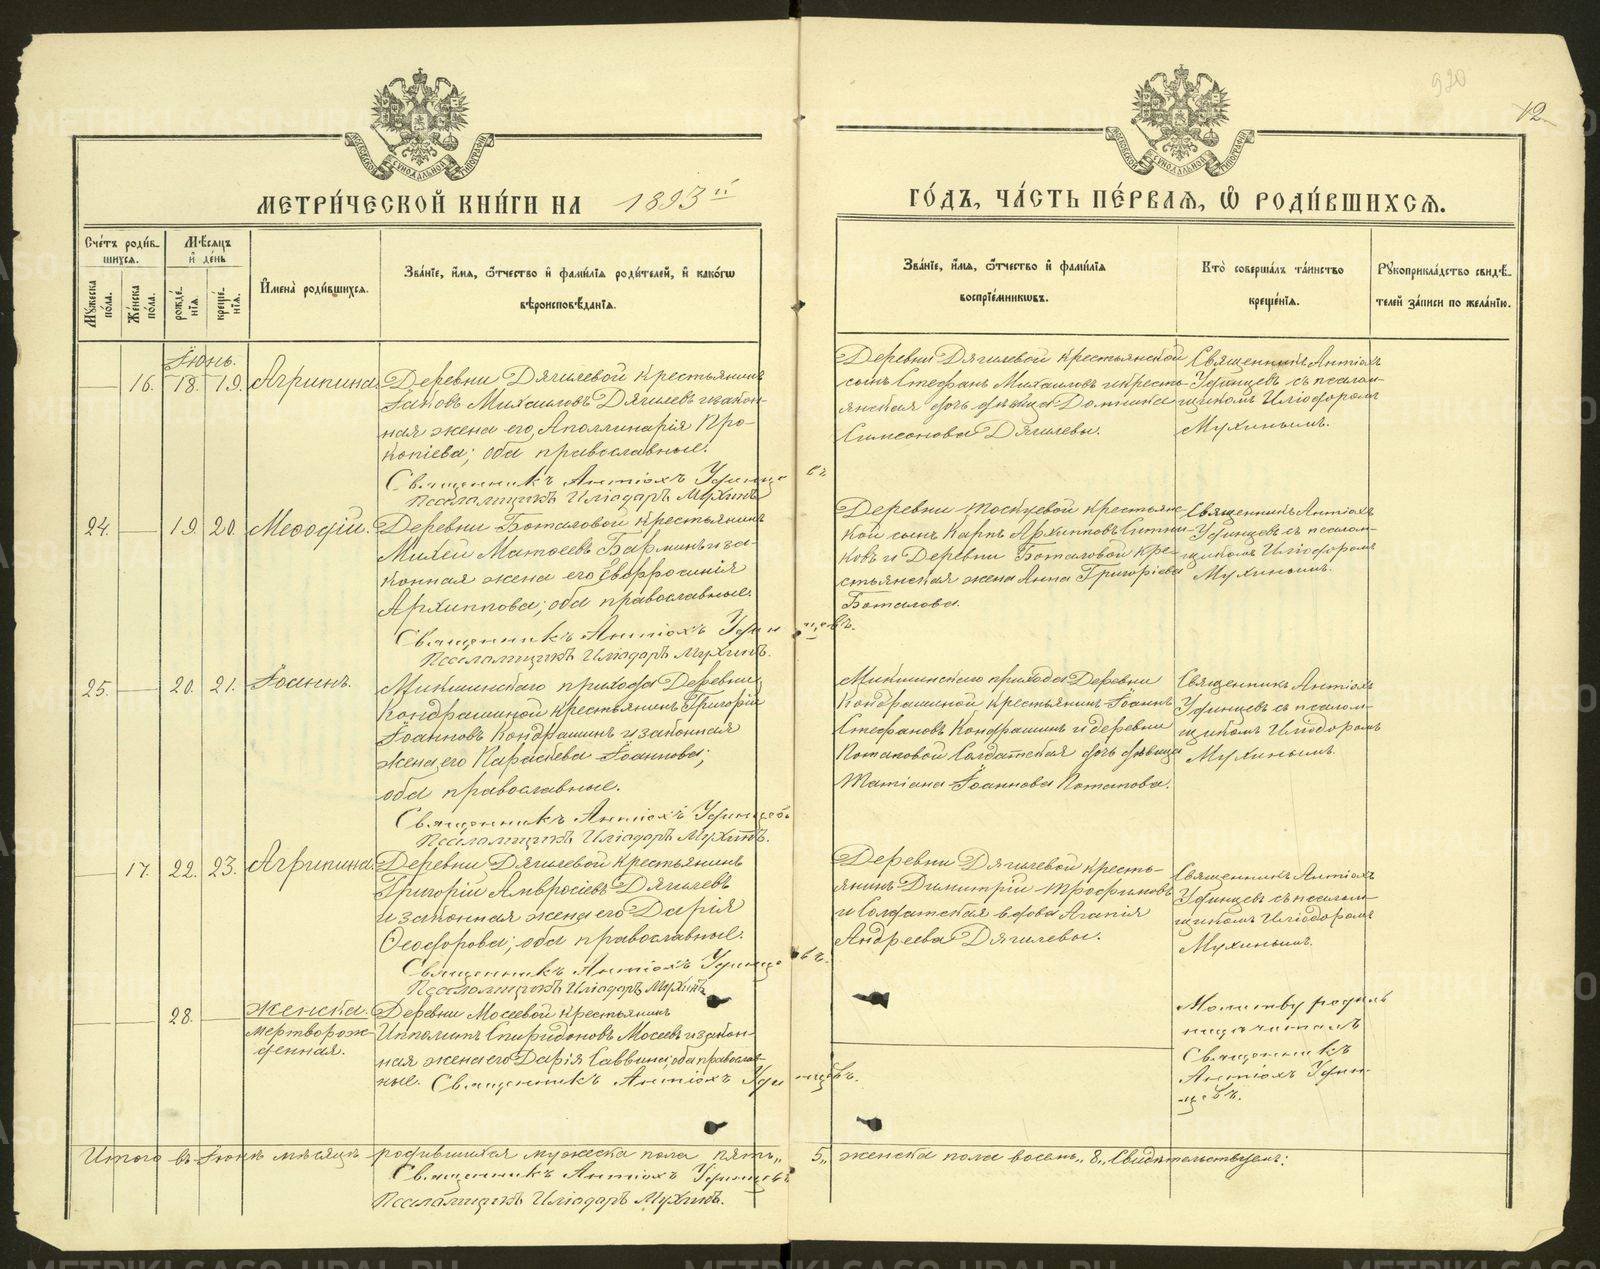 920
12
МЕТРИ́ЧЕСКОЙ КНИ́ГИ НА 1893й
ГО́ДЪ, ЧА́СТЬ ПЕ́РВАѦ, Ѡ҆ РОДИ́ВШИХСѦ.
Сче́тъ роди́в-
шихся.
Мѣ́сяцъ
и҆ де́нь
Мꙋ́жеска по́ла.
Же́нска по́ла.
рожде́-
нїѧ.
креще́-
нїѧ.
И҆мена̀ роди́вшихся.
Зва́нїе, и҆́мѧ, ѻ҆́тчество и҆ фами́лїѧ роди́телей, и҆ како́гѡ
вѣроисповѣ́данїѧ.
Зва́нїе, и҆́мѧ, ѻ҆́тчество и҆ фами́лїѧ
воспрїе́мникѡвъ.
Кто̀ соверша́лъ та́инство
креще́нїѧ.
Рꙋкоприкла́дство свидѣ́-
телей за́писи по жела́нїю.
Іюнь.
16. 18. 19. Агрипина.
Деревни Дягилевой крестьянинъ
Іаковъ Михаиловъ Дягилевъ и закон-
ная жена его Аполлинарія Про-
копіева; оба православные.
Священникъ Антіохъ Уфинцевъ
Псаломщикъ Иліодоръ Мухинъ
Деревни Дягилевой крестьянской
сынъ Стефанъ Михаиловъ и кресть-
янская дочь дѣвица Домника
Симеонова Дягилевы.
Священникъ Антіохъ
Уфинцевъ съ псалом-
щикомъ Иліодоромъ
Мухинымъ.
24. 19. 20. Меѳодій.
Деревни Боталовой крестьянинъ
Михей Матѳеевъ Барминъ и за-
конная жена его Евфросинія
Архиппова; оба православные.
Священникъ Антіохъ Уфинцевъ.
Псаломщикъ Иліодоръ Мухинъ.
Деревни Токуевой крестьянс
кой сынъ Карпъ Архипповъ Ситни
ковъ и Деревни Боталовой кре-
стьянская жена Анна Григоріева
Боталова.
Священникъ Антіохъ
Уфинцевъ съ псалом-
щикомъ Иліодоромъ
Мухинымъ.
25. 20. 21. Іоаннъ.
прихода Деревни
Кондрашиной крестьянинъ Григорій
Іоанновъ Кондрашинъ и законная
жена его Параскева Іоаннова;
оба православные.
Священникъ Антіохъ Уфинцевъ
Псаломщикъ Иліодоръ Мухинъ.
прихода Деревни
Кондрашиной крестьянинъ Іоаннъ
Стефановъ Кондрашинъ и деревни
Потаповой Солдатская дочь дѣвица
Татіана Іоаннова Потапова.
Священникъ Антіохъ
Уфинцевъ съ псалом-
щикомъ Иліодоромъ
Мухинымъ.
17. 22. 23. Агрипина.
Деревни Дягилевой крестьянинъ
Григорій Амвросіевъ Дягилевъ
и законная жена его Дарія
Ѳеодорова; оба православные.
Священникъ Антіохъ Уфинцевъ.
Псаломщикъ Иліодоръ Мухинъ
Деревни Дягилевой кресть-
янинъ Димитрій Трофимовъ
и Солдатская вдова Агапія
Андреева Дягилевы.
Священникъ Антіохъ
Уфинцевъ съ псалом-
щикомъ Иліодоромъ
Мухинымъ.
28. Женска.
мертворож-
денная.
Деревни Мосеевой крестьянинъ
Ипполитъ Спиридоновъ Мосеевъ и закон-
ная жена его Дарія Саввина; оба православ-
ные. Священникъ Антіохъ Уфинцевъ.
Молитву родиль
ницѣ читалъ
Священникъ
Антіохъ Уфин-
цевъ.
Итого въ Іюнѣ мѣсяцѣ родившихся мужеска пола пять „5„ женска пола восемь „8„ Свидѣтельствуемъ:
Священникъ Антіохъ Уфинцевъ
Псаломщикъ Иліодоръ Мухинъ.